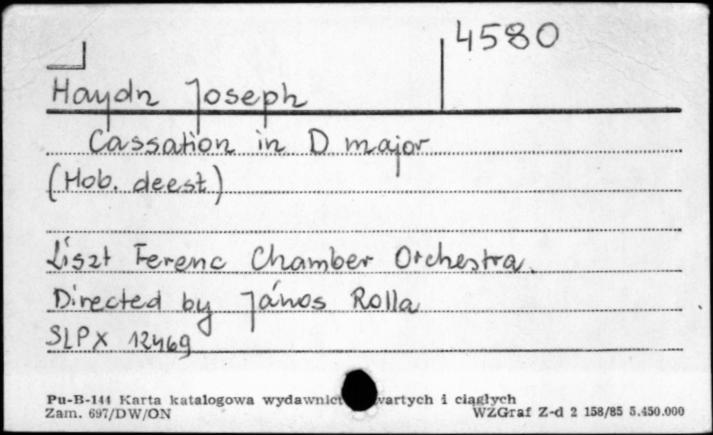 4580
Haydn Joseph
Cassation in D major
(Hob. deest)
Liszt Ferenc Chamber Orchestra.
Directed by János Rolla
SLPX 12469
Pu-B-144 Karta katalogowa i ciągłych
Zam. 697/DW/ON WZGraf Z-d 2 158/85 5.450.000